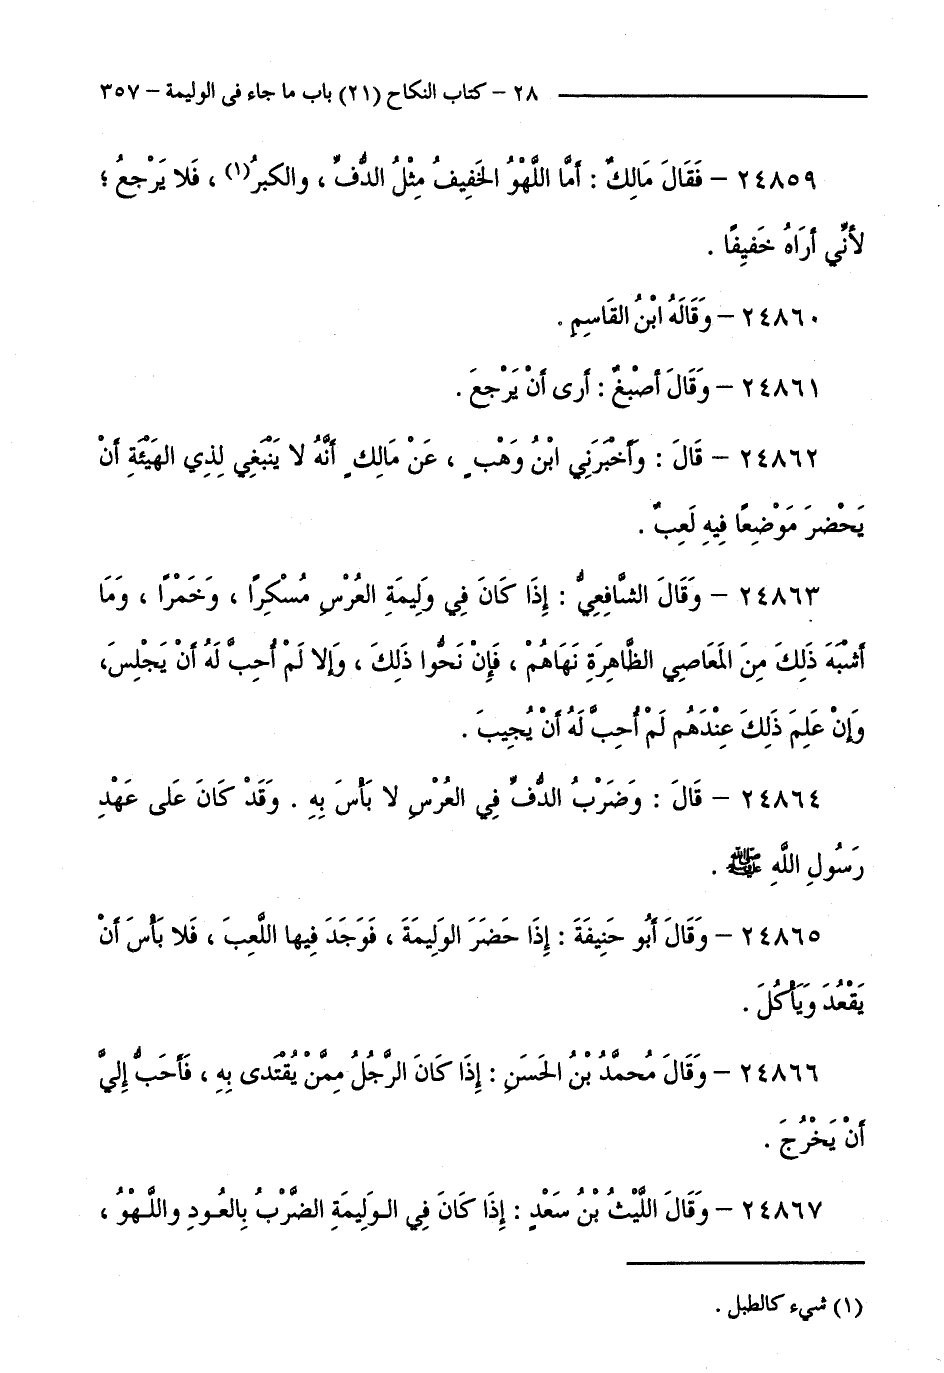 ٢٨ – كتاب النكاح (٢١) باب ما جاء فى الوليمة – ٣٥٧
٢٤٨٥٩ – فَقَالَ مَالِكٌ : أمَّا اللَّهْوُ الخَفِيفُ مِثْلُ الدُّفِّ ، والكبرُ(١) ، فَلا يَرْجعُ ؛
لأنِّي أرَاهُ خَفِيفًا .
٢٤٨٦٠ – وَقَالَهُ ابْنُ القَاسِمِ .
٢٤٨٦١ – وَقَالَ أصْبغُ : أرى أنْ يَرْجعَ .
٢٤٨٦٢ – قَالَ : وَأَخْبَرَنِي ابْنُ وَهْبٍ ، عَنْ مَالِكٍ أَنَّهُ لا يَنْبَغِي لِذِي الهَيْئَةِ أَنْ
يَحْضرَ مَوْضِعًا فِيهِ لَعِبٌ .
٢٤٨٦٣ – وَقَالَ الشَّافِعِيُّ : إِذَا كَانَ فِي وَلِيمَةِ العُرْسِ مُسْكِرًا ، وَخَمْرًا ، وَمَا
أشْبَهَ ذَلِكَ مِنَ المَعَاصِي الظَّاهِرَةِ نَهَاهُمْ ، فَإِنْ نَحُّوا ذَلِكَ ، وَإِلا لَمْ أُحِبَّ لَهُ أَنْ يَجْلِسَ،
وَإِنْ عَلِمَ ذَلِكَ عِنْدَهُم لَمْ أُحِبَّ لَهُ أَنْ يُجِيبَ .
٢٤٨٦٤ – قَالَ : وَضَرْبُ الدُّفِّ فِي العُرْسِ لا بَأْسَ بِهِ . وَقَدْ كَانَ عَلَى عَهْدِ
رَسُولِ اللَّهِ ﷺ .
٢٤٨٦٥ – وَقَالَ أَبُو حَنِيفَةَ : إِذَا حَضَرَ الوَلِيمَةَ ، فَوَجَدَ فِيها اللَّعِبَ ، فَلا بَأْسَ أَنْ
يَقْعُدَ وَيَأْكُلَ .
٢٤٨٦٦ – وَقَالَ مُحمَّدُ بْنُ الحَسَنِ : إِذَا كَانَ الرَّجُلُ مِمَّنْ يُقْتَدى بِهِ ، فَأَحَبُّ إِليَّ
أَنْ يَخْرُجَ .
٢٤٨٦٧ – وَقَالَ اللَّيْثُ بْنُ سَعْدٍ : إِذَا كَانَ فِي الـوَلِيمَةِ الضَّرْبُ بِالعُـودِ واللَّـهْوُ ،
(١) شيء كالطبل .